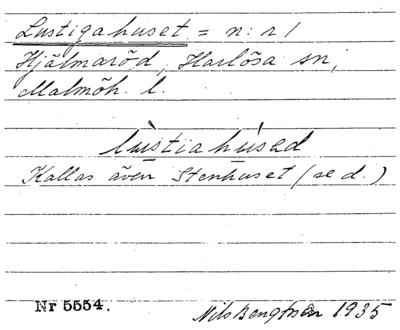 Lustigahuset = n: r 1
Hjälmaröd, Harlösa sn,
Malmöh. l.
lùstiahúsed
Kallas även Stenhuset (se d.)
Nr 5554.
Nils Bengtsson 1935